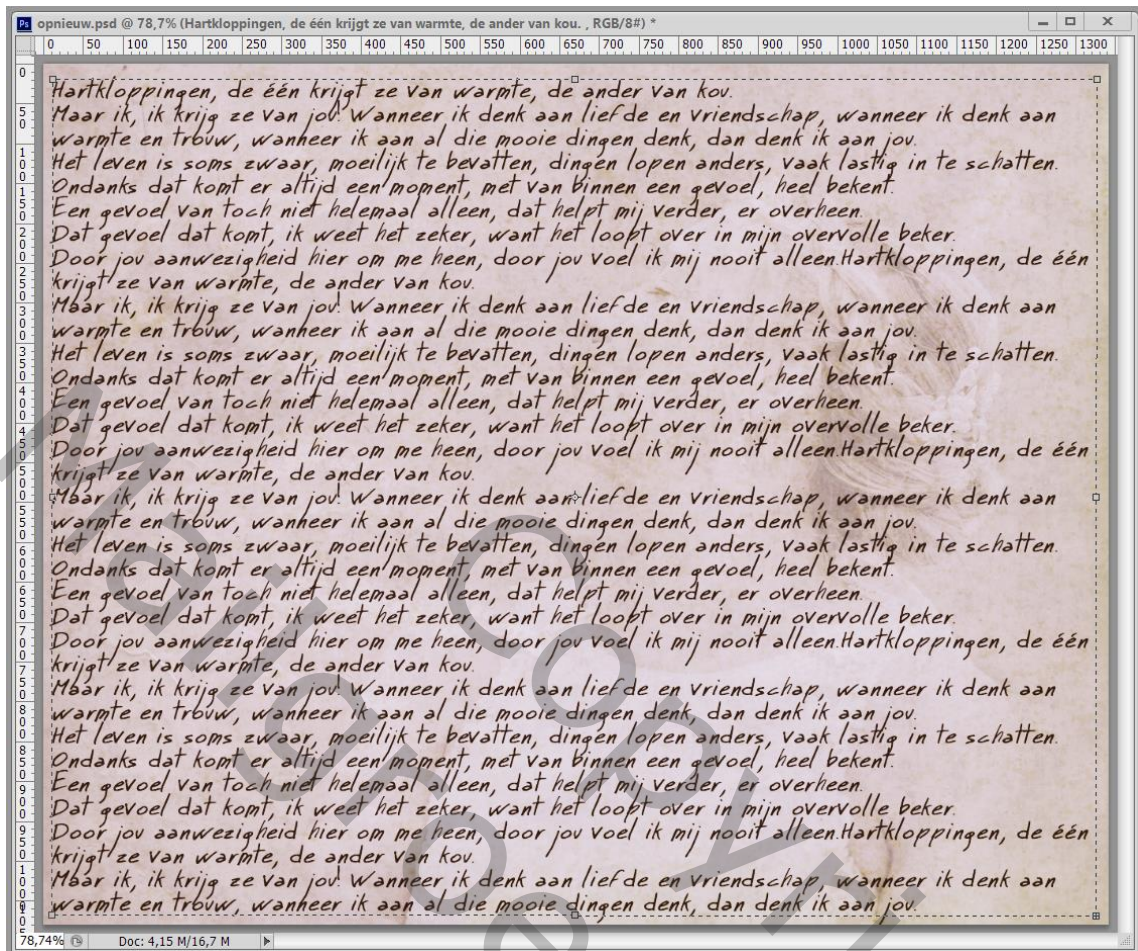 opnieuw.psd @ 78,7% (Hartkloppingen, de één krijgt ze van warmte, de ander van kou. , RGB/8#) *
0 50 100 150 200 250 300 350 400 450 500 550 600 650 700 750 800 850 900 950 1000 1050 1100 1150 1200 1250 1300
Hartkloppingen, de één krijgt ze van warmte, de ander van kou.
Maar ik, ik krijg ze van jou! Wanneer ik denk aan liefde en vriendschap, wanneer ik denk aan
warmte en trouw, wanneer ik aan al die mooie dingen denk, dan denk ik aan jou.
Het leven is soms zwaar, moeilijk te bevatten, dingen lopen anders, vaak lastig in te schatten.
Ondanks dat komt er altijd een moment, met van binnen een gevoel, heel bekent.
Een gevoel van toch niet helemaal alleen, dat helpt mij verder, er overheen.
Dat gevoel dat komt, ik weet het zeker, want het loopt over in mijn overvolle beker.
Door jou aanwezigheid hier om me heen, door jou voel ik mij nooit alleen.Hartkloppingen, de één
krijgt ze van warmte, de ander van kou.
Maar ik, ik krijg ze van jou! Wanneer ik denk aan liefde en vriendschap, wanneer ik denk aan
warmte en trouw, wanneer ik aan al die mooie dingen denk, dan denk ik aan jou.
Het leven is soms zwaar, moeilijk te bevatten, dingen lopen anders, vaak lastig in te schatten.
Ondanks dat komt er altijd een moment, met van binnen een gevoel, heel bekent.
Een gevoel van toch niet helemaal alleen, dat helpt mij verder, er overheen.
Dat gevoel dat komt, ik weet het zeker, want het loopt over in mijn overvolle beker.
Door jou aanwezigheid hier om me heen, door jou voel ik mij nooit alleen.Hartkloppingen, de één
krijgt ze van warmte, de ander van kou.
Maar ik, ik krijg ze van jou! Wanneer ik denk aan liefde en vriendschap, wanneer ik denk aan
warmte en trouw, wanneer ik aan al die mooie dingen denk, dan denk ik aan jou.
Het leven is soms zwaar, moeilijk te bevatten, dingen lopen anders, vaak lastig in te schatten.
Ondanks dat komt er altijd een moment, met van binnen een gevoel, heel bekent.
Een gevoel van toch niet helemaal alleen, dat helpt mij verder, er overheen.
Dat gevoel dat komt, ik weet het zeker, want het loopt over in mijn overvolle beker.
Door jou aanwezigheid hier om me heen, door jou voel ik mij nooit alleen.Hartkloppingen, de één
krijgt ze van warmte, de ander van kou.
Maar ik, ik krijg ze van jou! Wanneer ik denk aan liefde en vriendschap, wanneer ik denk aan
warmte en trouw, wanneer ik aan al die mooie dingen denk, dan denk ik aan jou.
Het leven is soms zwaar, moeilijk te bevatten, dingen lopen anders, vaak lastig in te schatten.
Ondanks dat komt er altijd een moment, met van binnen een gevoel, heel bekent.
Een gevoel van toch niet helemaal alleen, dat helpt mij verder, er overheen.
Dat gevoel dat komt, ik weet het zeker, want het loopt over in mijn overvolle beker.
Door jou aanwezigheid hier om me heen, door jou voel ik mij nooit alleen.Hartkloppingen, de één
krijgt ze van warmte, de ander van kou.
Maar ik, ik krijg ze van jou! Wanneer ik denk aan liefde en vriendschap, wanneer ik denk aan
warmte en trouw, wanneer ik aan al die mooie dingen denk, dan denk ik aan jou.
78,74% Doc: 4,15 M/16,7 M